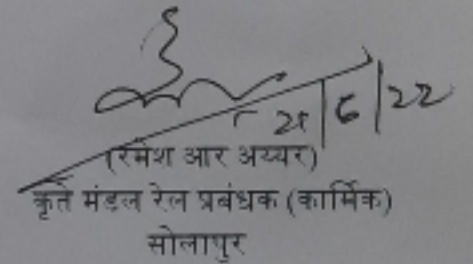 21/6/22
(रमेश आर अय्यर)
कृते मंडल रेल प्रबंधक (कार्मिक)
सोलापुर